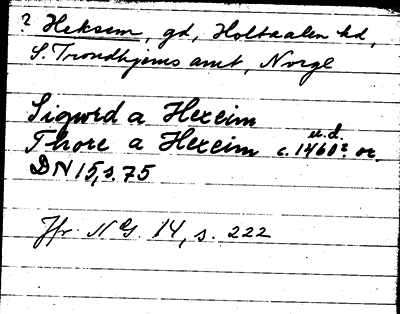 ? Heksem, gd, Holtaalen hd,
S. Trondhjems amt, Norge
Sigwrd a Hexeim
u.d.
Thore a Hexeim c. 1460? or.
DN 15, s. 75
Jfr. NG. 14, s. 222